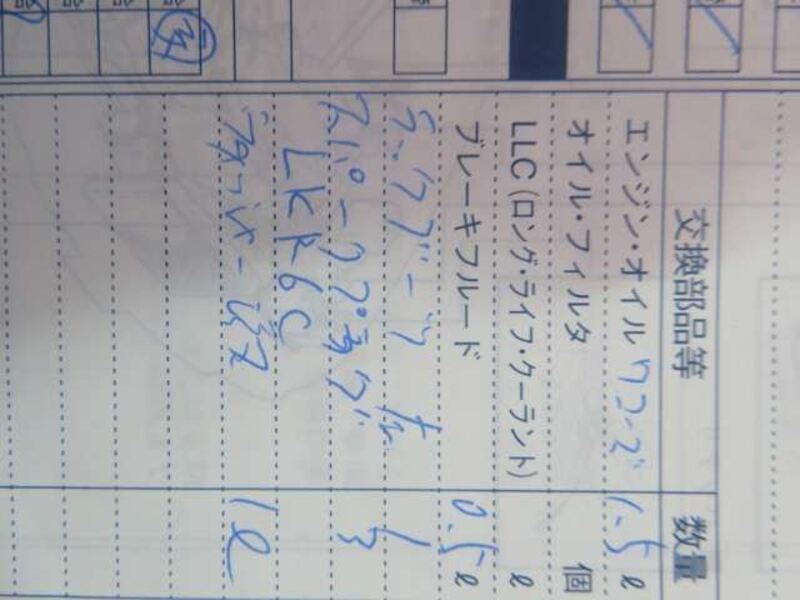 交換部品等 数量
エンジン・オイル ワコーズ 1.5 ℓ
オイル・フィルタ 個
LLC(ロング・ライフ・クーラント) ℓ
ブレーキフルード 0.5 ℓ
ラックブーツ 左 1
スパークプラグ 3
LKR6C
1ℓ